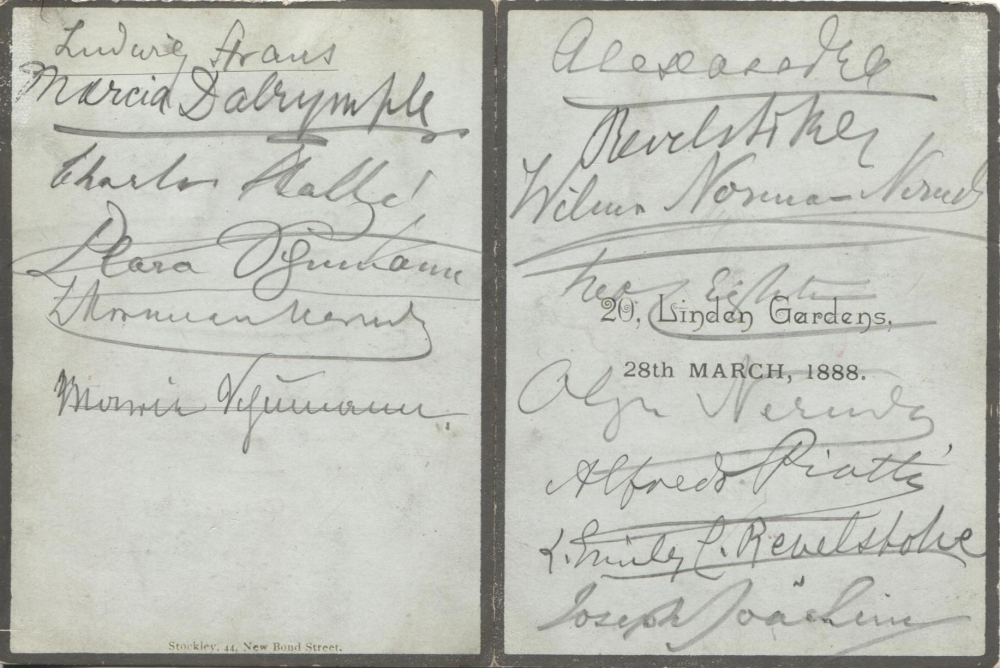 Ludwig Straus
Marcia Dalrymple
Charles Hallé
Clara Schumann
L Norman Neruda
Marie Schumann
Stockley, 44, New Bond Street.
Alexandra
Revelstoke
Wilma Norman-Neruda
20, Linden Gardens,
28th MARCH, 1888.
Olga Neruda
Alfredo Piatti
L. Emily C. Revelstoke
Joseph Joachim